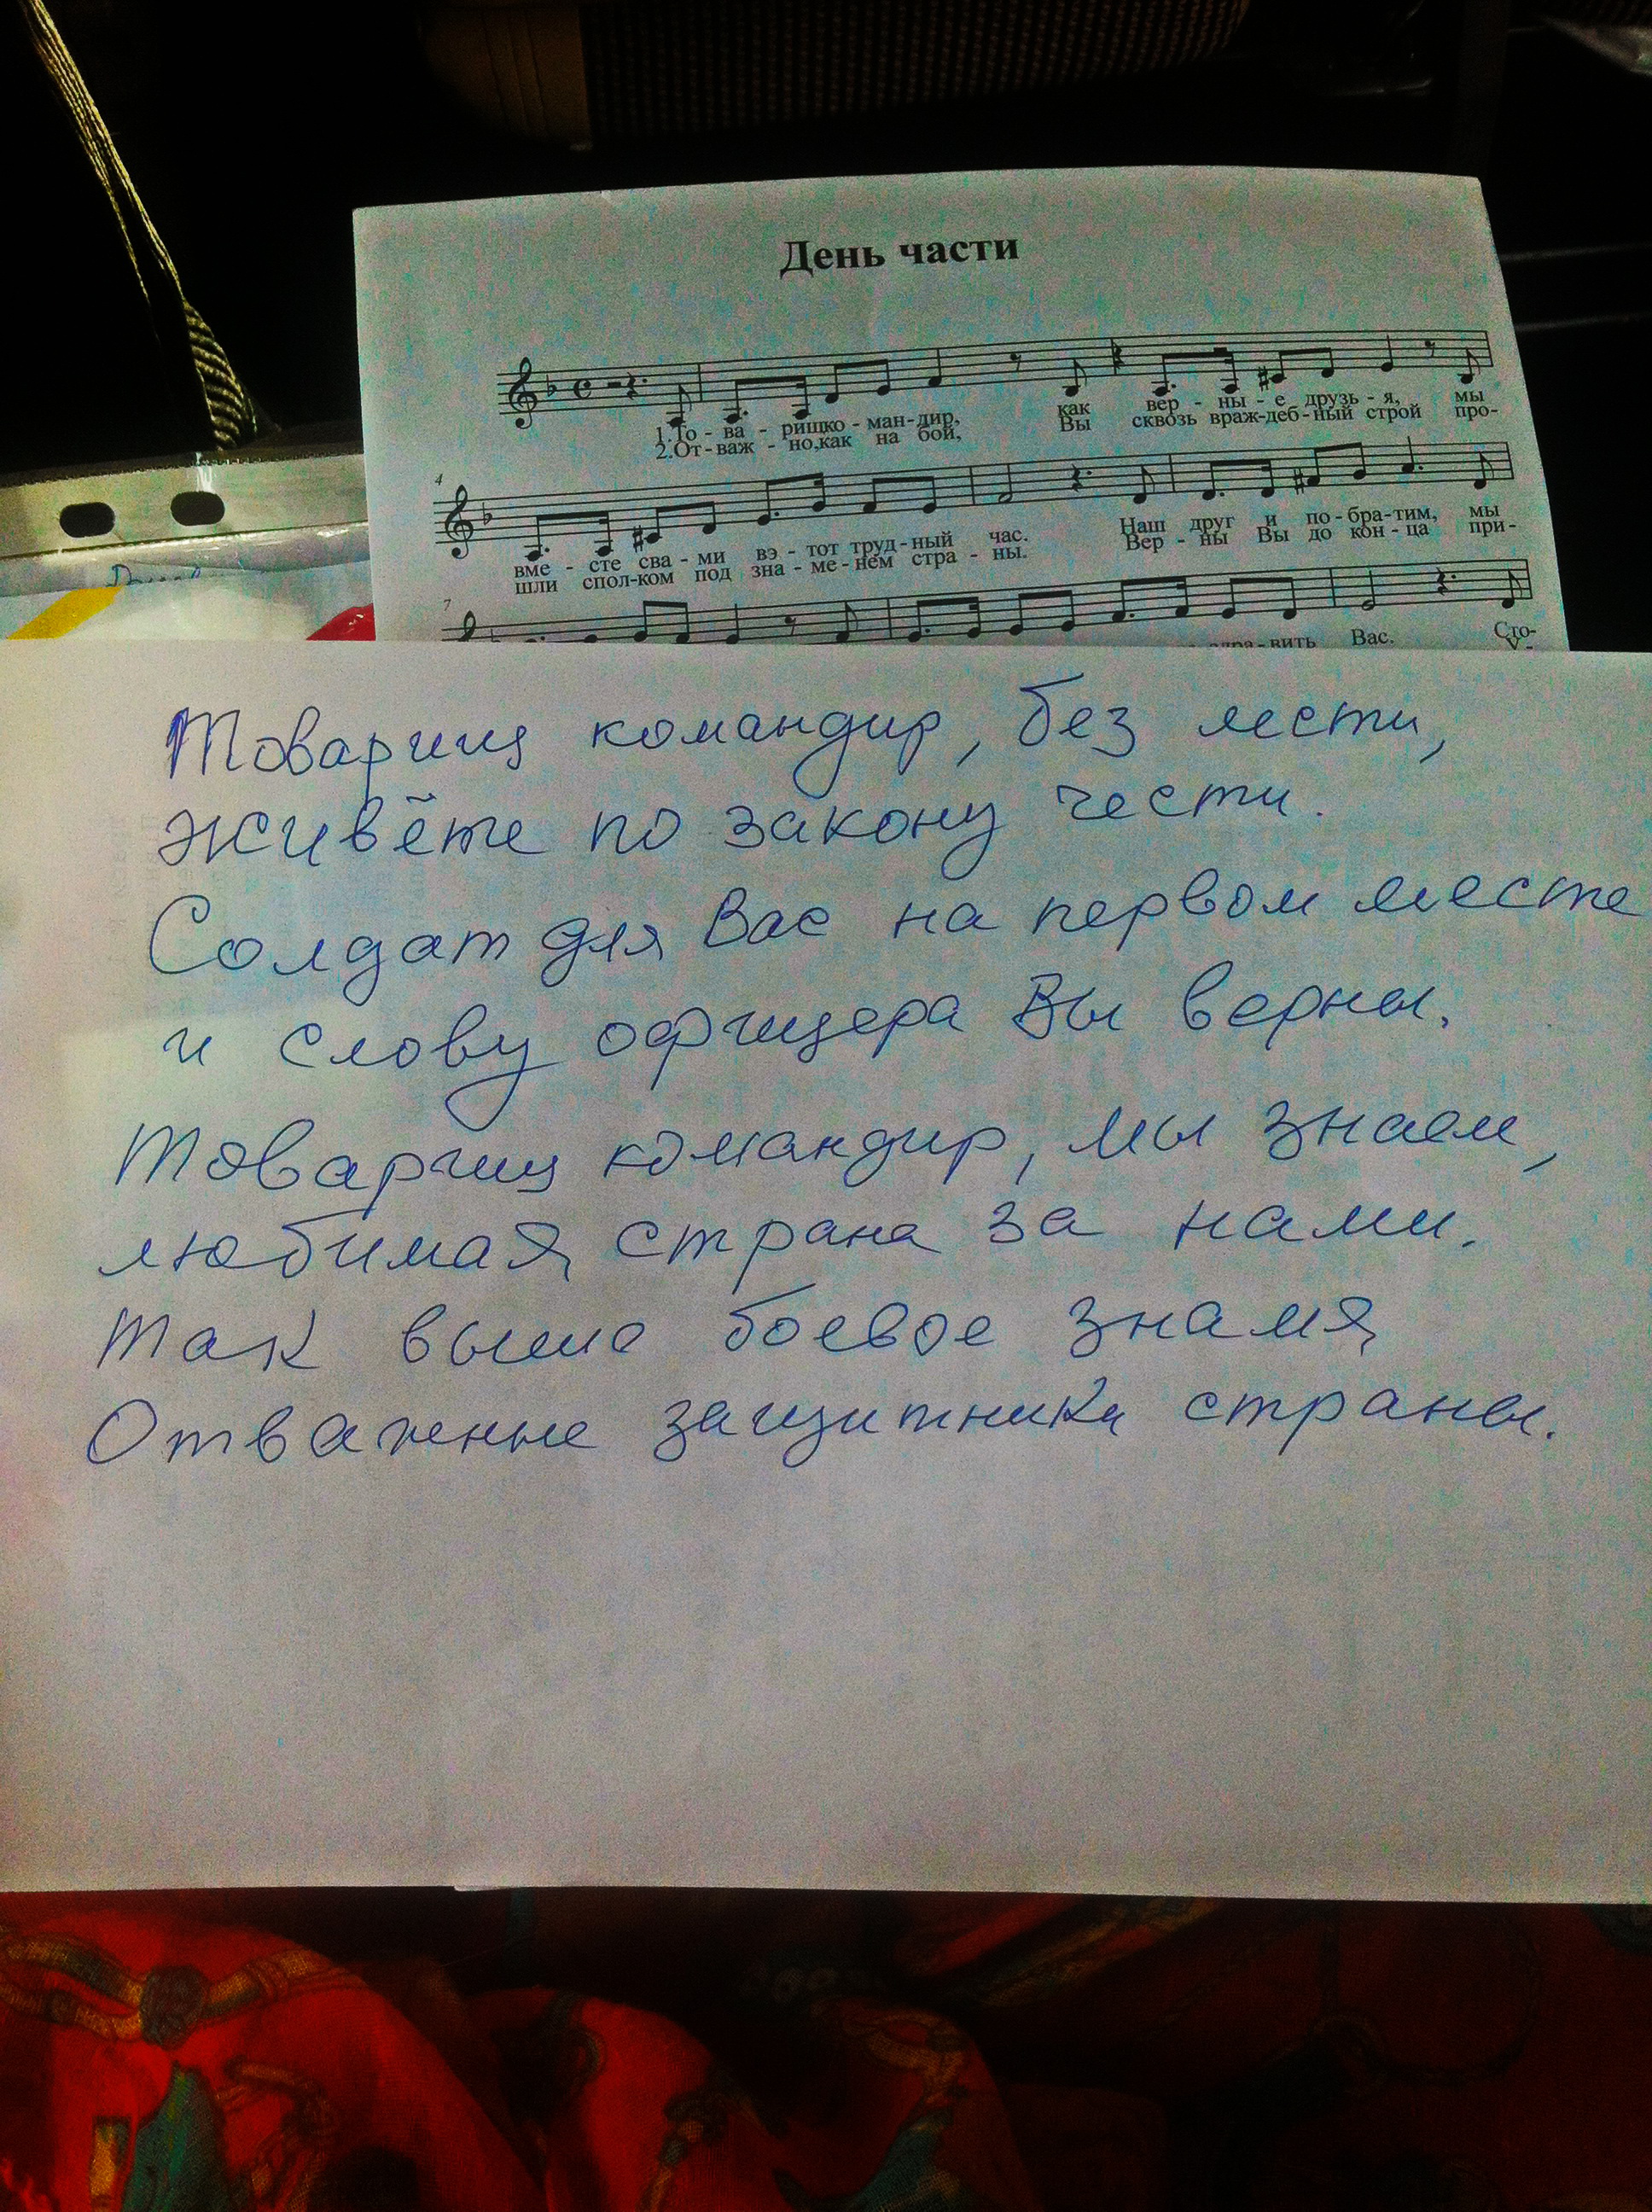 День части
1.То - ва - рищко - ман-дир, как вер - ны - е друзь - я, мы
2.От-важ - но,как на бой, Вы сквозь враж-деб-ный строй про-
4
вме - сте сва - ми вэ - тот труд-ный час. Наш друг и по-бра-тим, мы
шли спол-ком под зна - ме-нем стра - ны. Вер - ны Вы до кон-ца при-
7
здра-вить Вас. Сто-
Товарищ командир, без лести,
живёте по закону чести.
Солдат для Вас на первом месте
и слову офицера Вы верны.
Товарищ командир, мы знаем,
любимая страна за нами.
Так выше боевое знамя
Отважные защитники страны.